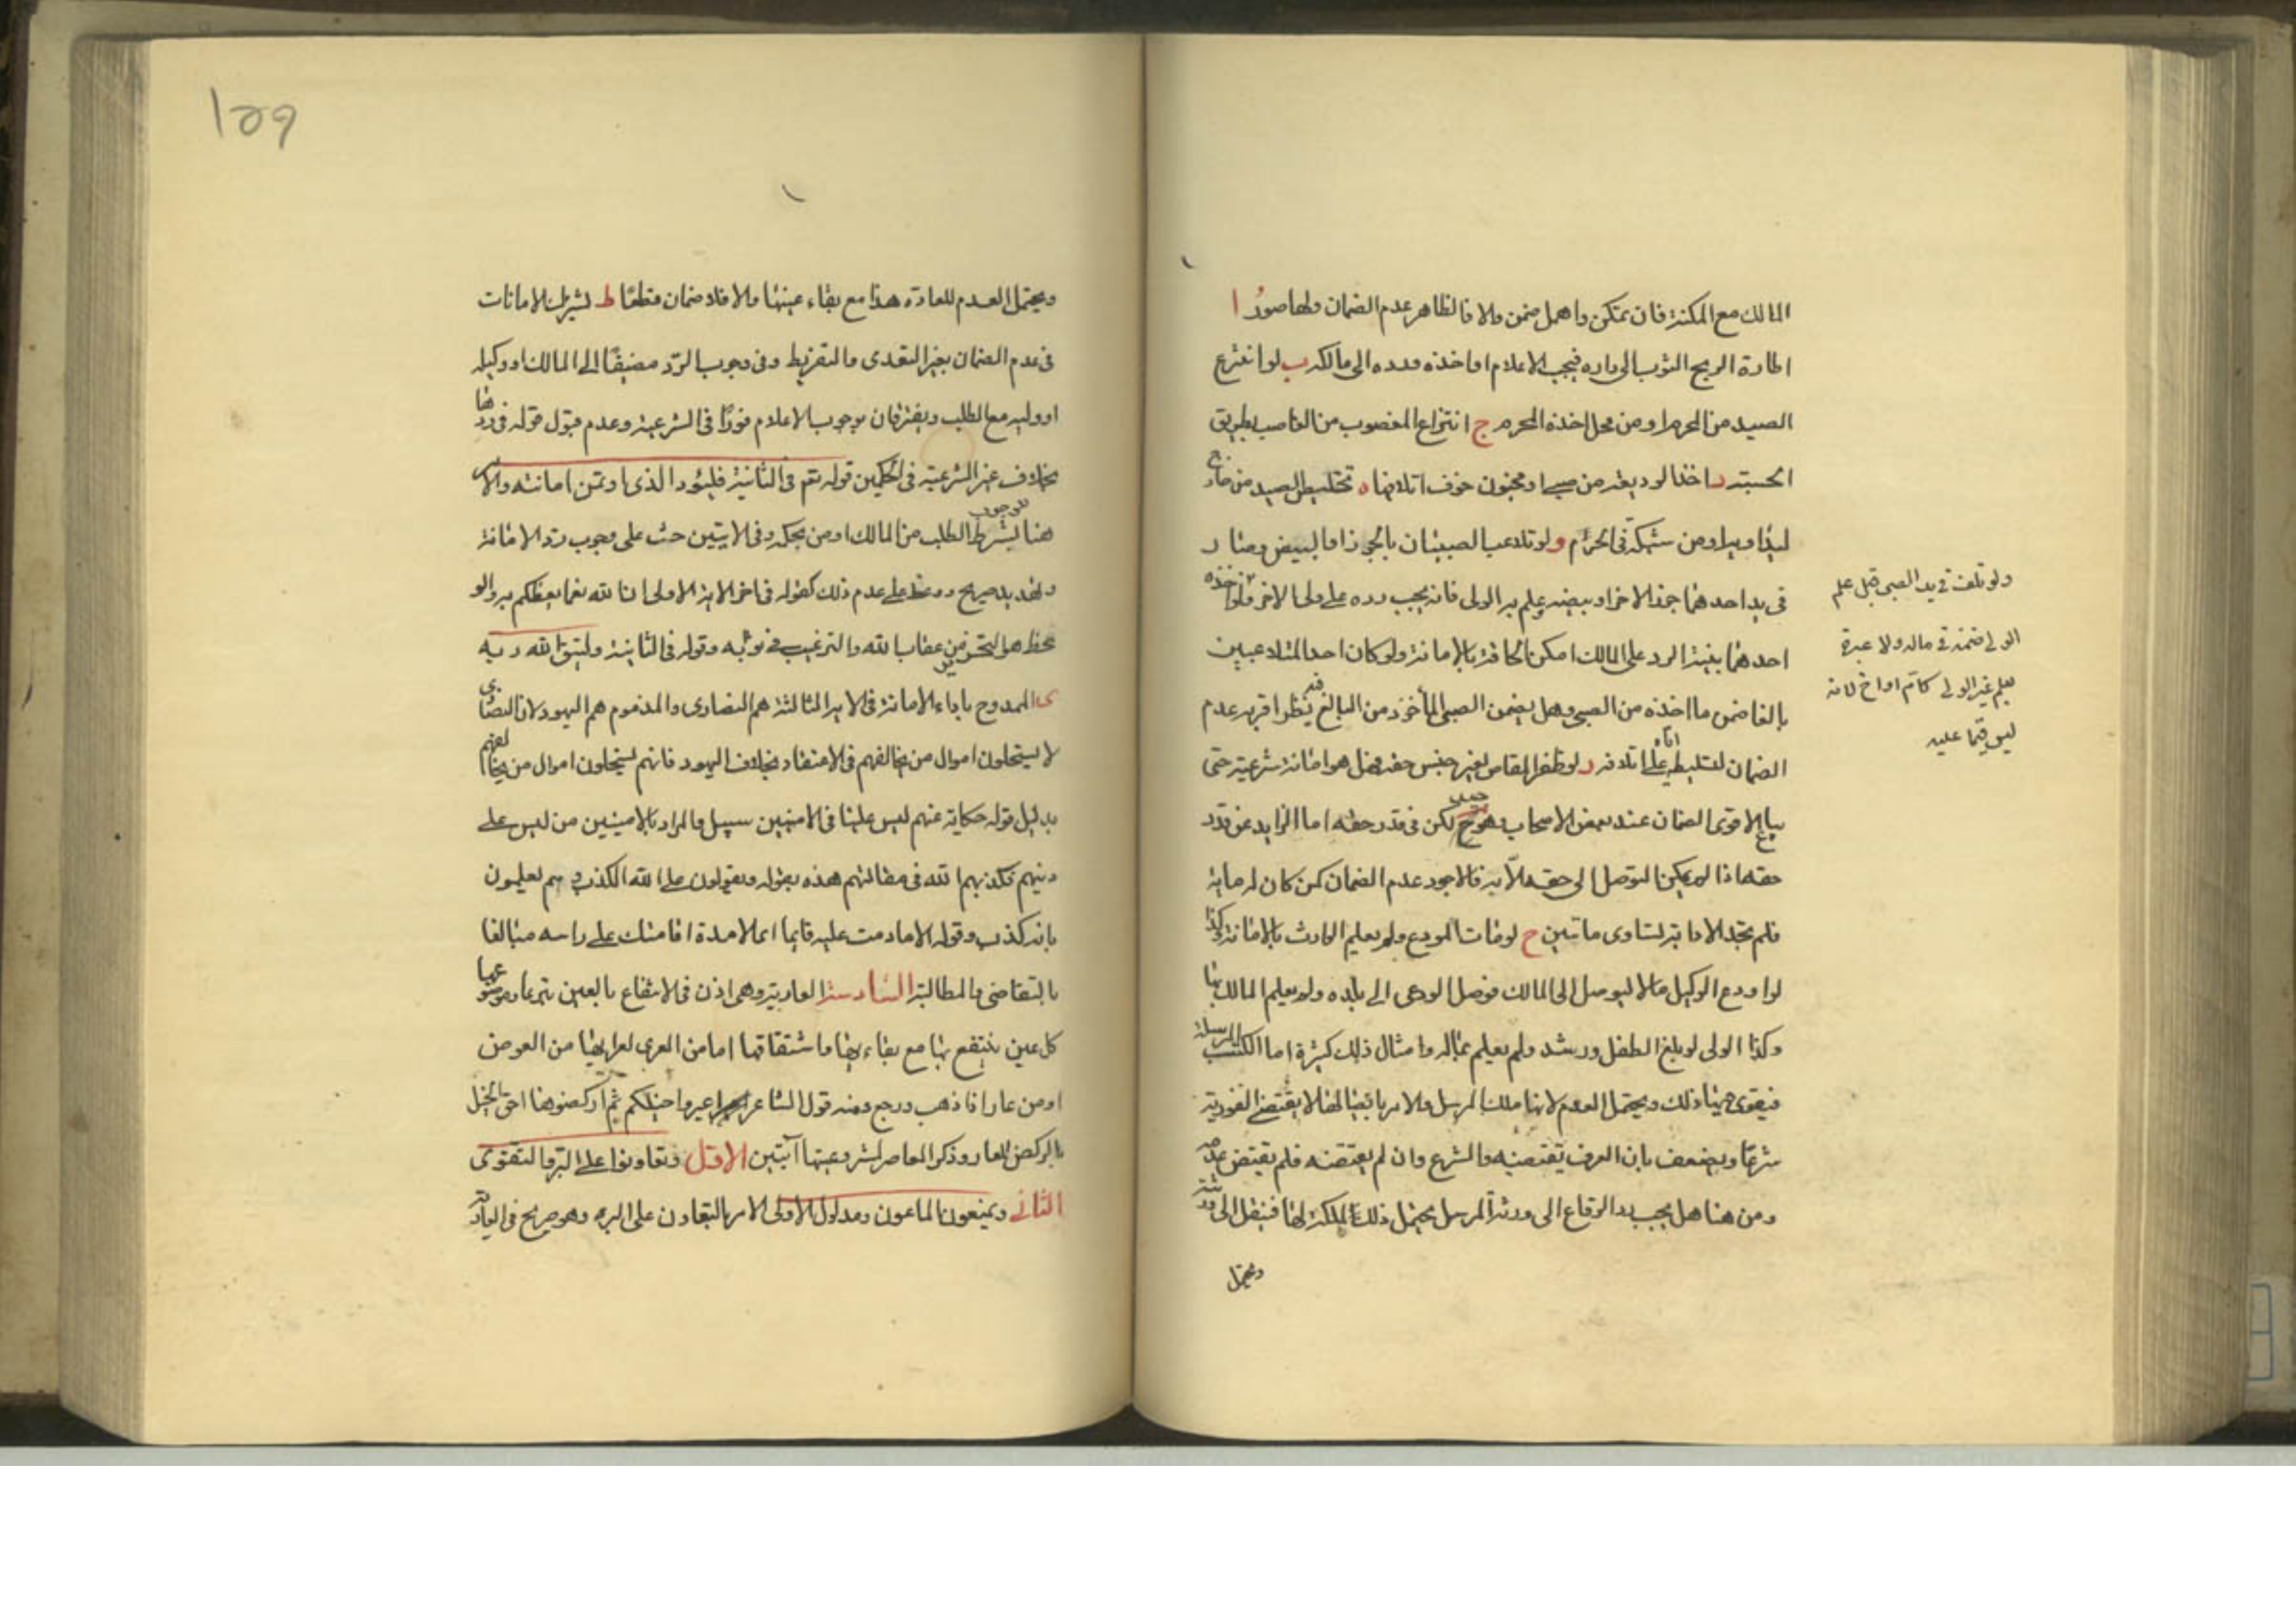 المالك مع المكنة فان تمكن واهمل ضمن والا فالظاهر عدم الضمان ولها صور ا
اطارة الريح الثوب الى داره فيجب الاعلام او اخذه ورده الى مالكه ب لو انتزع
الصيد من المحرم او من محل اخذه المحرم ج انتزاع المغصوب من الغاصب بطريق
الحسبة د اخذ الوديعة من صبي او مجنون خوف اتلافها ه تخليص الصيد من جارح
ليداويه او من شبكة في الحرم و لو تلاعب الصبيان بالجوز او البيض وصار
في يد احدهما جوز الاخر او بيضه وعلم به الولى فانه يجب رده على ولى الاخر ولو اخذه
احدهما بنية الرد على المالك امكن الحاقه بالامانة ولو كان احد المتلاعبين
بالغا ضمن ما اخذه من الصبي وهل يضمن الصبي المأخوذ من البالغ فيه نظر اقربه عدم
الضمان لتسليطه اياه على اتلافه ز لو ظفر المقاص بغير جنس حقه فهل هو امانة شرعية حتى
يباع الاقوى الضمان عند بعض الاصحاب وهو ح حسن لكن في قدر حقه اما الزايد عن قدر
حقه اذا لم يمكن التوصل الى حقه الا به فالاجود عدم الضمان كمن كان له ماية
فلم يجد الا دابة تساوى ماتين ح لو مات المودع ولم يعلم الوارث بالامانة وكذا
لو اودع الوكيل مالا ليوصل الى المالك فوصل الودعى الى بلده ولم يعلم المالك بها
وكذا الولى لو بلغ الطفل ورشد ولم يعلم بماله وامثال ذلك كثيرة اما الكتب المرسلة
فيقوى فيها ذلك ويحتمل العدم لانها ملك المرسل والامر بايصالها لا يقتضى الفورية
شرعا ويضعف بان العرف يقتضيه والشرع وان لم يقتضه فلم يقتض عدمه
ومن هنا هل يجب رد الرقاع الى ورثة المرسل يحتمل ذلك لملكه لها فينقل الى ورثته
ويحتمل
ولو تلفت في يد الصبى قبل علم
الولى ضمنه في ماله ولا عبرة
بعلم غير الولى كأم او اخ لانه
ليس قيما عليه
١٥٩
ويحتمل العدم للعادة هذا مع بقاء عينها والا فلا ضمان قطعا ط تشترك الامانات
في عدم الضمان بغير التعدى والتفريط وفى وجوب الرد مضيقا الى المالك او وكيله
او وليه مع الطلب ويفترقان بوجوب الاعلام فورا في الشرعية وعدم قبول قوله في ردها
بخلاف غير الشرعية في الحكمين قوله تع في الثانية فليؤد الذى اوتمن امانته والامر
هنا للوجوب بشرط الطلب من المالك او من بحكمه وفى الايتين حث على وجوب رد الامانة
وتهديد صريح ووعظ على عدم ذلك كقوله في اخر الاية الاولى ان الله نعما يعظكم به والو
عظ هو التحرز من عقاب الله والترغيب في ثوابه وقوله في الثانية وليتق الله ربه
ى الممدوح باداء الامانة في الاية الثالثة هم النصارى والمذموم هم اليهود لان النصارى
لا يستحلون اموال من يخالفهم في الاعتقاد بخلاف اليهود فانهم يستحلون اموال من يخالفهم
بدليل قوله حكاية عنهم ليس علينا في الاميين سبيل والمراد بالاميين من ليس على
دينهم فكذبهم الله في مقالتهم هذه بقوله ويقولون على الله الكذب وهم يعلمون
بانه كذب وقوله الا ما دمت عليه قايما اى الا مدة اقامتك على راسه مبالغا
بالتقاضى والمطالبة السادسة العارية وهى اذن في الانتفاع بالعين تبرعا وموضوعها
كل عين ينتفع بها مع بقاءها واشتقاقها اما من العرى لعرايها من العوض
او من عار اذا ذهب ورجع ومنه قول الشاعر اعيروا خيلكم ثم اركضوها احق الخيل
بالركض المعار وذكر المعاصر لمشروعيتها آيتين الاولى وتعاونوا على البر والتقوى
الثانى ويمنعون الماعون ومدلول الاولى الامر بالتعاون على البر وهو صريح في العارية